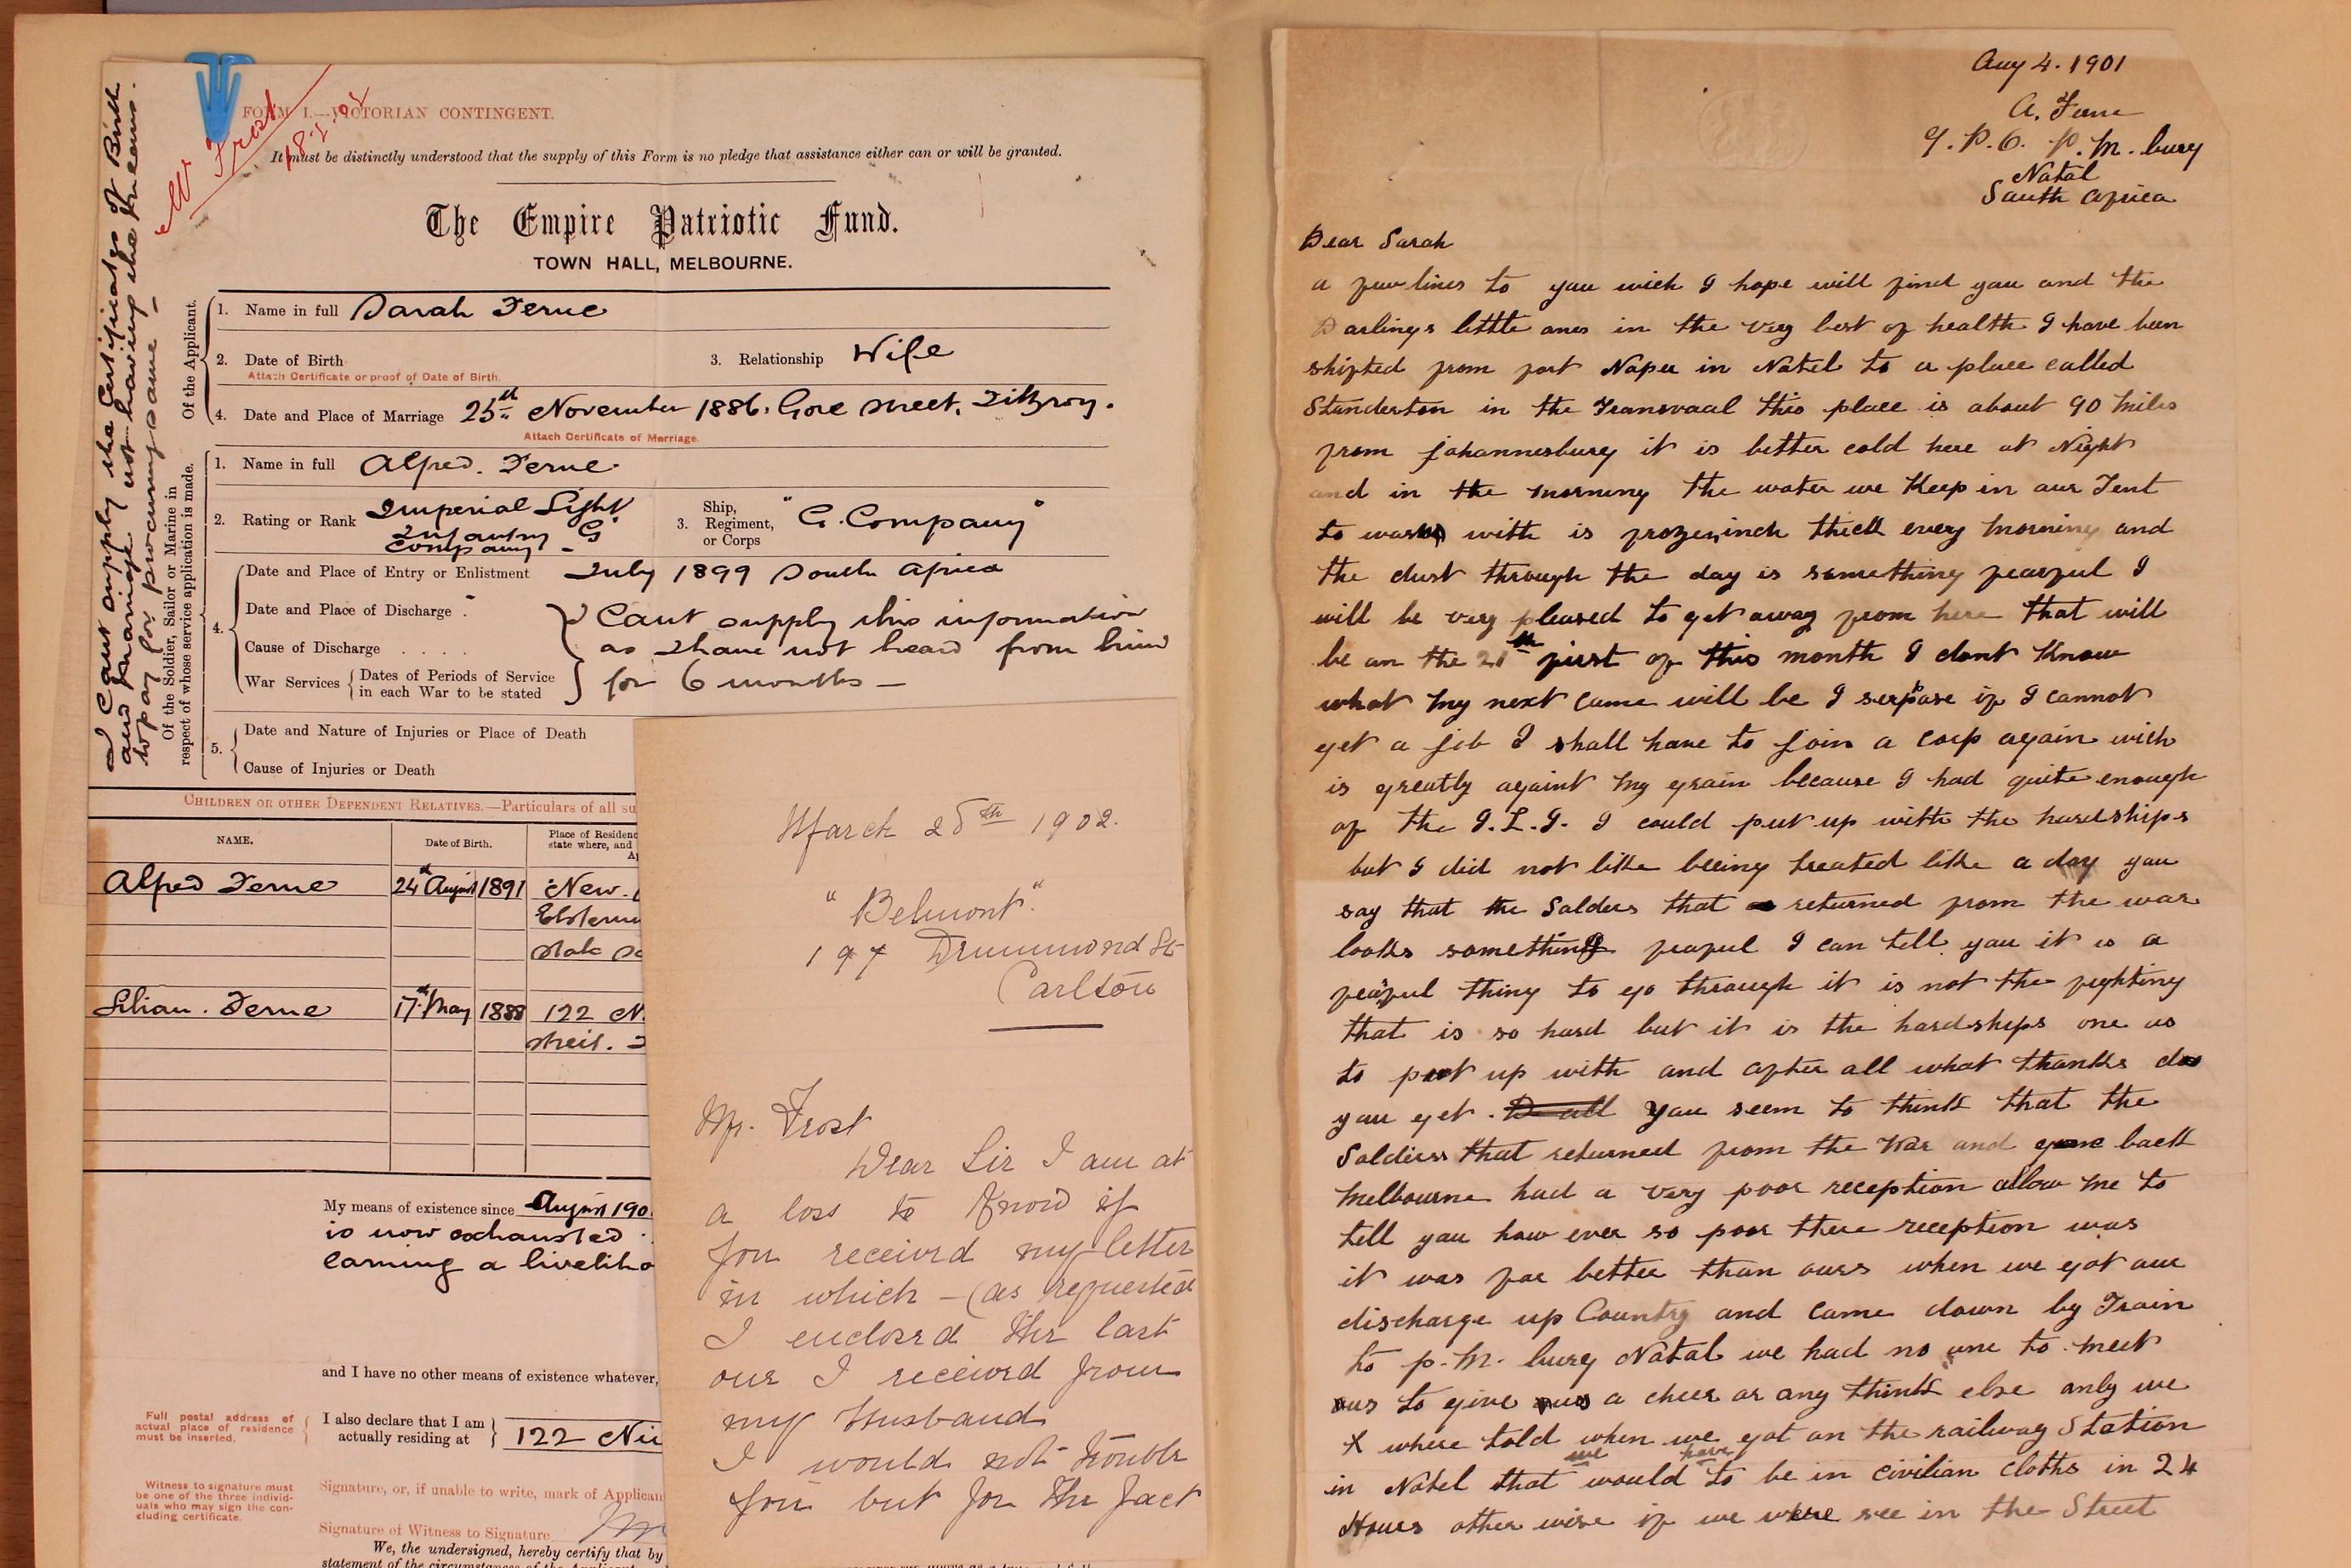 FORM I.—VICTORIAN CONTINGENT.
W Frost
It must be distinctly understood that the supply of this Form is no pledge that assistance either can or will be granted.
The Empire Patriotic Fund.
TOWN HALL, MELBOURNE.
I cant supply the Certificates of Birth
and Marriage not having the means
to pay for procuring same –
Of the Applicant.
1. Name in full Sarah Ferne
2. Date of Birth
Attach Certificate or proof of Date of Birth.
3. Relationship Wife
4. Date and Place of Marriage 25th November 1886. Gore Street, Fitzroy.
Attach Certificate of Marriage.
Of the Soldier, Sailor or Marine in
respect of whose service application is made.
1. Name in full Alfred. Ferne.
2. Rating or Rank Imperial Light
Infantry "G"
Company –
3. Ship, Regiment, or Corps "G. Company"
4.
Date and Place of Entry or Enlistment July 1899 South Africa
Date and Place of Discharge
Cause of Discharge . . . .
War Services { Dates of Periods of Service
in each War to be stated
Cant supply this information
as I have not heard from him
for 6 months –
5.
Date and Nature of Injuries or Place of Death
Cause of Injuries or Death
CHILDREN OR OTHER DEPENDENT RELATIVES.—Particulars of all su
NAME.
Date of Birth.
Place of Residenc
state where, and
Alfred Ferne 24th August 1891 New
State Sc
Lilian. Ferne 17th May 1888 122 N
Street.
My means of existence since August 190
is now exhausted
earning a liveliho
and I have no other means of existence whatever,
Full postal address of
actual place of residence
must be inserted.
I also declare that I am
actually residing at 122
Witness to signature must
be one of the three individ-
uals who may sign the con-
cluding certificate.
Signature, or, if unable to write, mark of Applican
Signature of Witness to Signature
We, the undersigned, hereby certify that by
statement of the circumstances of the Applicant
March 28th 1902.
"Belmont".
197 Drummond St
Carlton
Mr. Frost
Dear Sir I am at
a loss to know if
you received my letter
in which – (as requested
I enclosed the last
one I received from
my Husband
I would not trouble
you but for the fact
Aug 4. 1901
A. Ferne
G. P. O. P. M. burg
Natal
South Africa
Dear Sarah
a few lines to you wich I hope will find you and the
Darlings little ones in the very best of health I have been
shifted from fort Napier in Natel to a place called
Standerton in the Transvaal this place is about 90 miles
from Johannesburg it is better cold here at Night
and in the morning the water we Keep in our Tent
to wash with is frozen inch thick every morning and
the dust through the day is something fearful I
will be very pleased to get away from here that will
be on the 21th first of this month I dont Know
what my next came will be I serpose if I cannot
get a job I shall have to join a corp again wich
is greatly againt my grain because I had quite enough
of the I. L. I. I could put up with the hardships
but I did not like beeing treated like a dog you
say that the Solders that returned from the war
looks something feaful I can tell you it is a
feaful thing to go through it is not the fighting
that is so hard but it is the hardships one as
to put up with and after all what thanks do
you get. You seem to think that the
Soldiers that returned from the War and gone back
Melbourne had a very poor reception allow me to
tell you how ever so poor there reception was
it was far better than ours when we got our
discharge up Country and came down by Train
to p. M. burg Natal we had no one to meet
us to give us a cheer or any think else only we
where told when we got on the railway Station
in Natel that we would have to be in civilian cloths in 24
Hours other wise if we were see in the Street